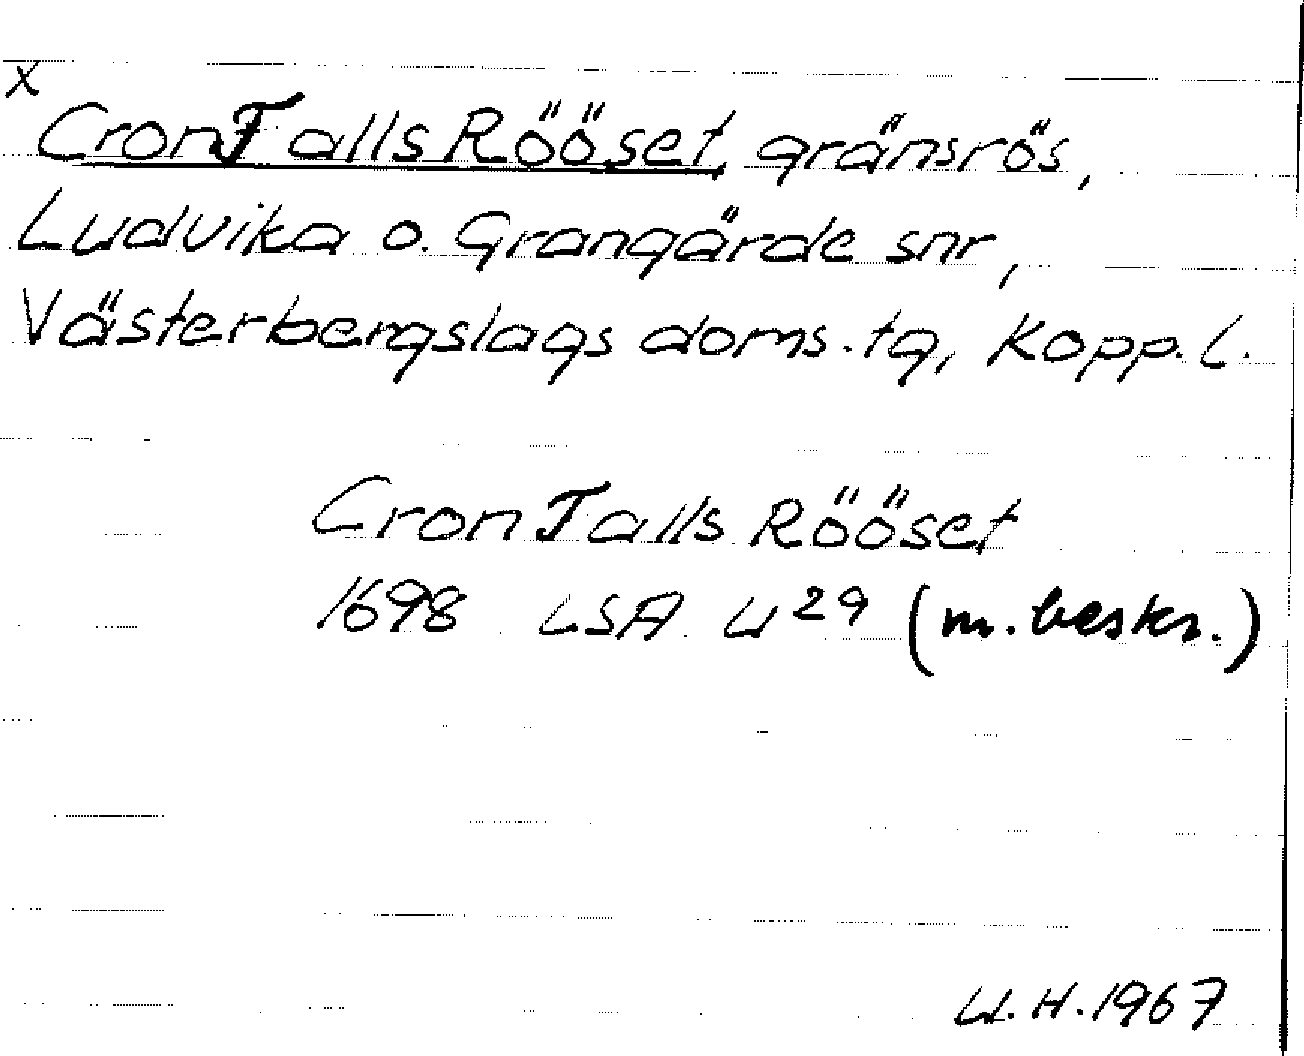 x
CronTalls Rööset, gränsrös,
Ludvika o. Grangärde snr,
Västerbergslags doms. tg, Kopp. l.
CronTalls Rööset
1698 LSA U29 (m. beskr.)
U.H. 1967